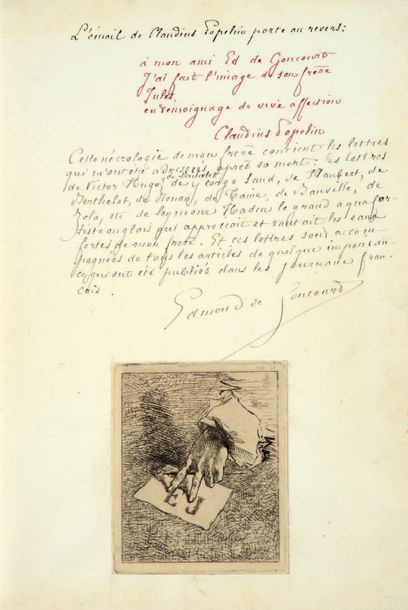 L'émail de Claudius Popelin porte au revers :
à mon ami Ed de Goncourt
J'ai fait l'image de son frère
Jules
en témoignage de vive affection
Claudius Popelin
Cette nécrologie de mon frère contient les lettres
qui m'ont été adressées après sa mort : les lettres
de Michelet
de Victor Hugo, de George Sand, de Flaubert, de
Berthelot, de Renan, de Taine, de Banville, de
Zola, de Seymour Haden le grand aquafor-
tiste anglais qui appréciait et vantait les eaux
fortes de mon frère. Et ces lettres sont accom-
pagnées de tous les articles de quelque importan-
ce, qui ont été publiés dans les journaux fran-
çais.
Edmond de Goncourt
E J